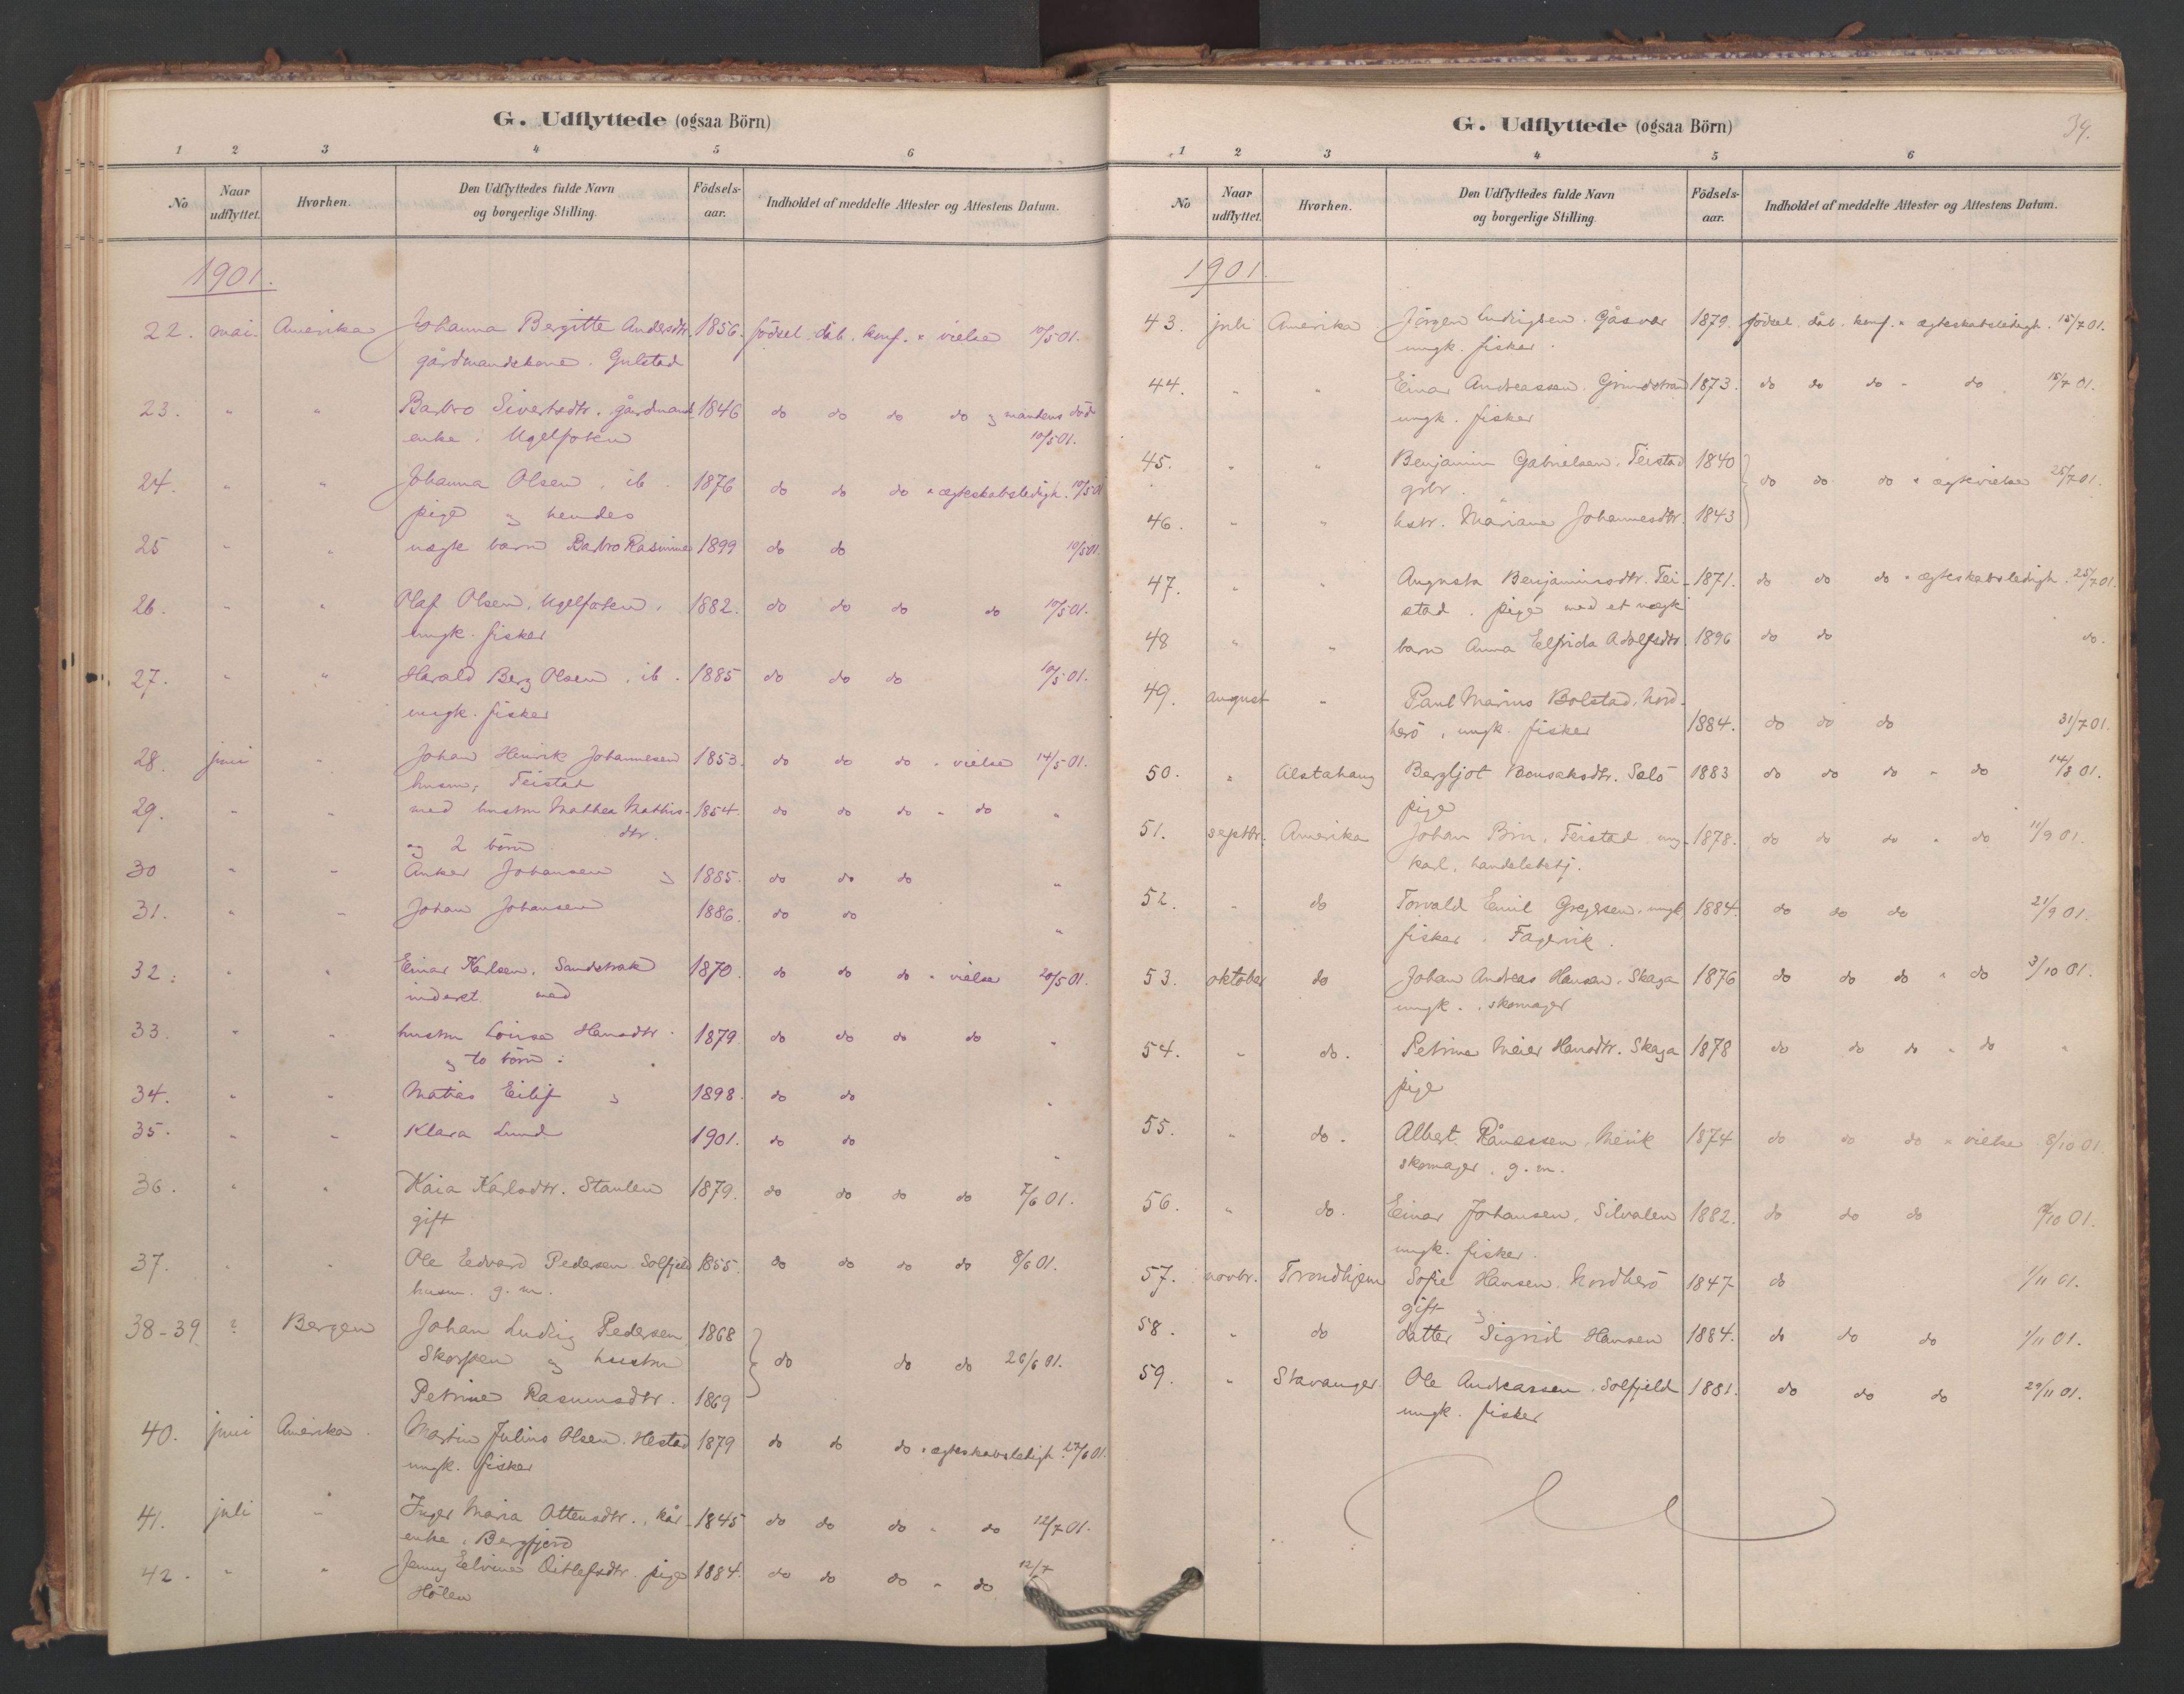 G. Udflyttede (ogsaa Börn)
1 2 3 4 5 6
No Naar udflyttet. Hvorhen. Den Udflyttedes fulde Navn og borgerlige Stilling. Födsels-aar. Indholdet af meddelte Attester og Attestens Datum.
1901.
22. mai. Amerika Johanna Bergitte Andersdtr. 1856. födsel. dåb. konf. + vielse 10/5 01.
gårdmandskone. Gulstad
23. " " Barbro Sivertsdtr. gårdmands 1846 do do do do og mandens död
enke. Ugelfoten 10/5 01.
24. " " Johanna Olsen. ib. 1876 do do do + ægteskabsledigh. 10/5 01
pige og hendes
25 " " uægte barn Barbro Rasmine 1899 do do 10/5 01.
26. " " Olaf Olsen. Ugelfoten. 1882. do do do do 10/5 01.
ungk. fisker
27. " " Harald Berg Olsen. ib. 1885 do do do 10/5 01.
ungk. fisker
28. juni " Johan Henrik Johannesen 1853. do do do " vielse 14/5 01.
husm; Teistad
29. " " med hustru Mathea Mathis- 1854. do do do " do "
og 2 börn: dtr.
30 " " Anker Johansen og 1885. do do do "
31. " " Johan Johansen 1886. do do "
32. " " Einar Karlsen. Sandstrak 1870. do do do " vielse 20/5 01.
inderst. med
33. " " hustru Lovise Hansdtr. 1879. do do do do "
og to börn:
34. " " Matias Eilif og 1898. do do "
35. " " Klara Lund 1901. do do "
36. " " Kaia Karlsdtr. Staulen 1879. do do do do 7/6 01.
gift
37. " " Ole Edvard Pedersen Solfjeld 1855. do do do do 8/6 01.
husm. g. m.
38-39. ? Bergen Johan Ludvig Pedersen 1868
Skorpen og hustru do do do 26/6 01.
Petrine Rasmusdtr. 1869
40. juni Amerika. Martin Julius Olsen. Hestad 1879 do do do " ægteskabsledigh. 27/6 01.
ungk. fisker
41. juli " Inger Maria Ottensdtr., kår- 1845 do do do " do 12/7 01.
enke. Bergfjord
42. " " Jenny Elvine Ditlefsdtr. pige 1884. do do do " do 12/7
Hölen
G. Udflyttede (ogsaa Börn) 39.
1 2 3 4 5 6
No Naar udflyttet. Hvorhen. Den Udflyttedes fulde Navn og borgerlige Stilling. Födsels-aar. Indholdet af meddelte Attester og Attestens Datum.
1901.
43. juli Amerika Jörgen Ludvigsen. Gåsvær 1879. födsel. dåb. konf. + ægteskabsledigh. 15/7 01.
ungk. fisker.
44. " " Einar Andreassen. Grindstrand 1873. do do do " do 15/7 01.
ungk. fisker
45. " " Benjamin Gabrielsen. Teistad 1840
gbr. do do do + ægtevielse 25/7 01.
46. " " hstr. Mariane Johannesdtr. 1843
47. " " Augusta Benjaminsdtr. Tei- 1871. do do do " ægteskabsledigh. 25/7 01.
stad. pige med et uægte
48 " " barn Anna Elfrida Adolfsdtr. 1896 do do do.
49. august " Paul Marius Bolstad, Nord-
herö, ungk. fisker 1884. do do do 31/7 01.
50. " Alstahaug Bergljot Bonsaksdtr. Selö 1883 do do do " do 14/8 01.
pige
51. septbr. Amerika Johan Brun. Teistad. ung- 1878. do do do " do 11/9 01.
karl. handelsbetj.
52. " do Torvald Emil Gregersen, ungk. 1884. do do do 21/9 01.
fisker. Fagervik.
53. oktober do Johan Andreas Hansen. Skaga 1876 do do do " do 3/10 01.
ungk. skomager
54. " do. Petrine Meier Hansdtr. Skaga 1878 do do do " do "
pige
55. " do. Albert Rånassen, Mevik 1874 do do do " vielse 8/10 01.
skomager. g. m.
56. " do. Einar Johansen. Silvalen 1882. do do do 9/10 01.
ungk. fisker.
57. novbr. Trondhjem Sofie Hansen. Nordherö 1847 do 1/11 01.
gift og
58. " do datter Sigrid Hansen 1884. do do do 1/11 01.
59. " Stavanger. Ole Andreassen. Solfjeld 1881. do do do 29/11 01.
ungk. fisker